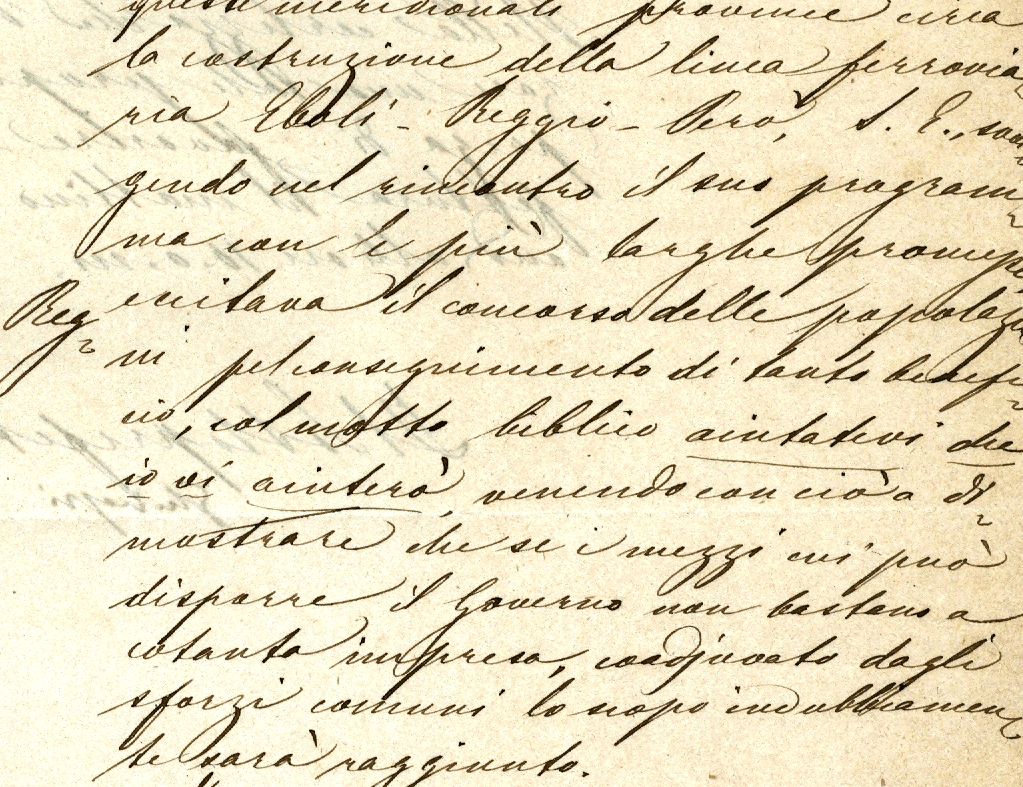 queste meridionali province circa
la costruzione della linea ferrovia
ria Eboli - Reggio - Però, S. E.,
gendo nel rincontro il suo program
ma con le più larghe promesse,
Reg
eccitava il concorso delle popolazio
ni pel conseguimento di tanto benefi
cio, col motto biblico aiutatevi che
io vi aiuterò, venendo con ciò a di
mostrare che se i mezzi cui può
disporre il Governo non bastano a
cotanta impresa, coadjuvato dagli
sforzi comuni lo scopo indubbiamen
te sarà raggiunto.